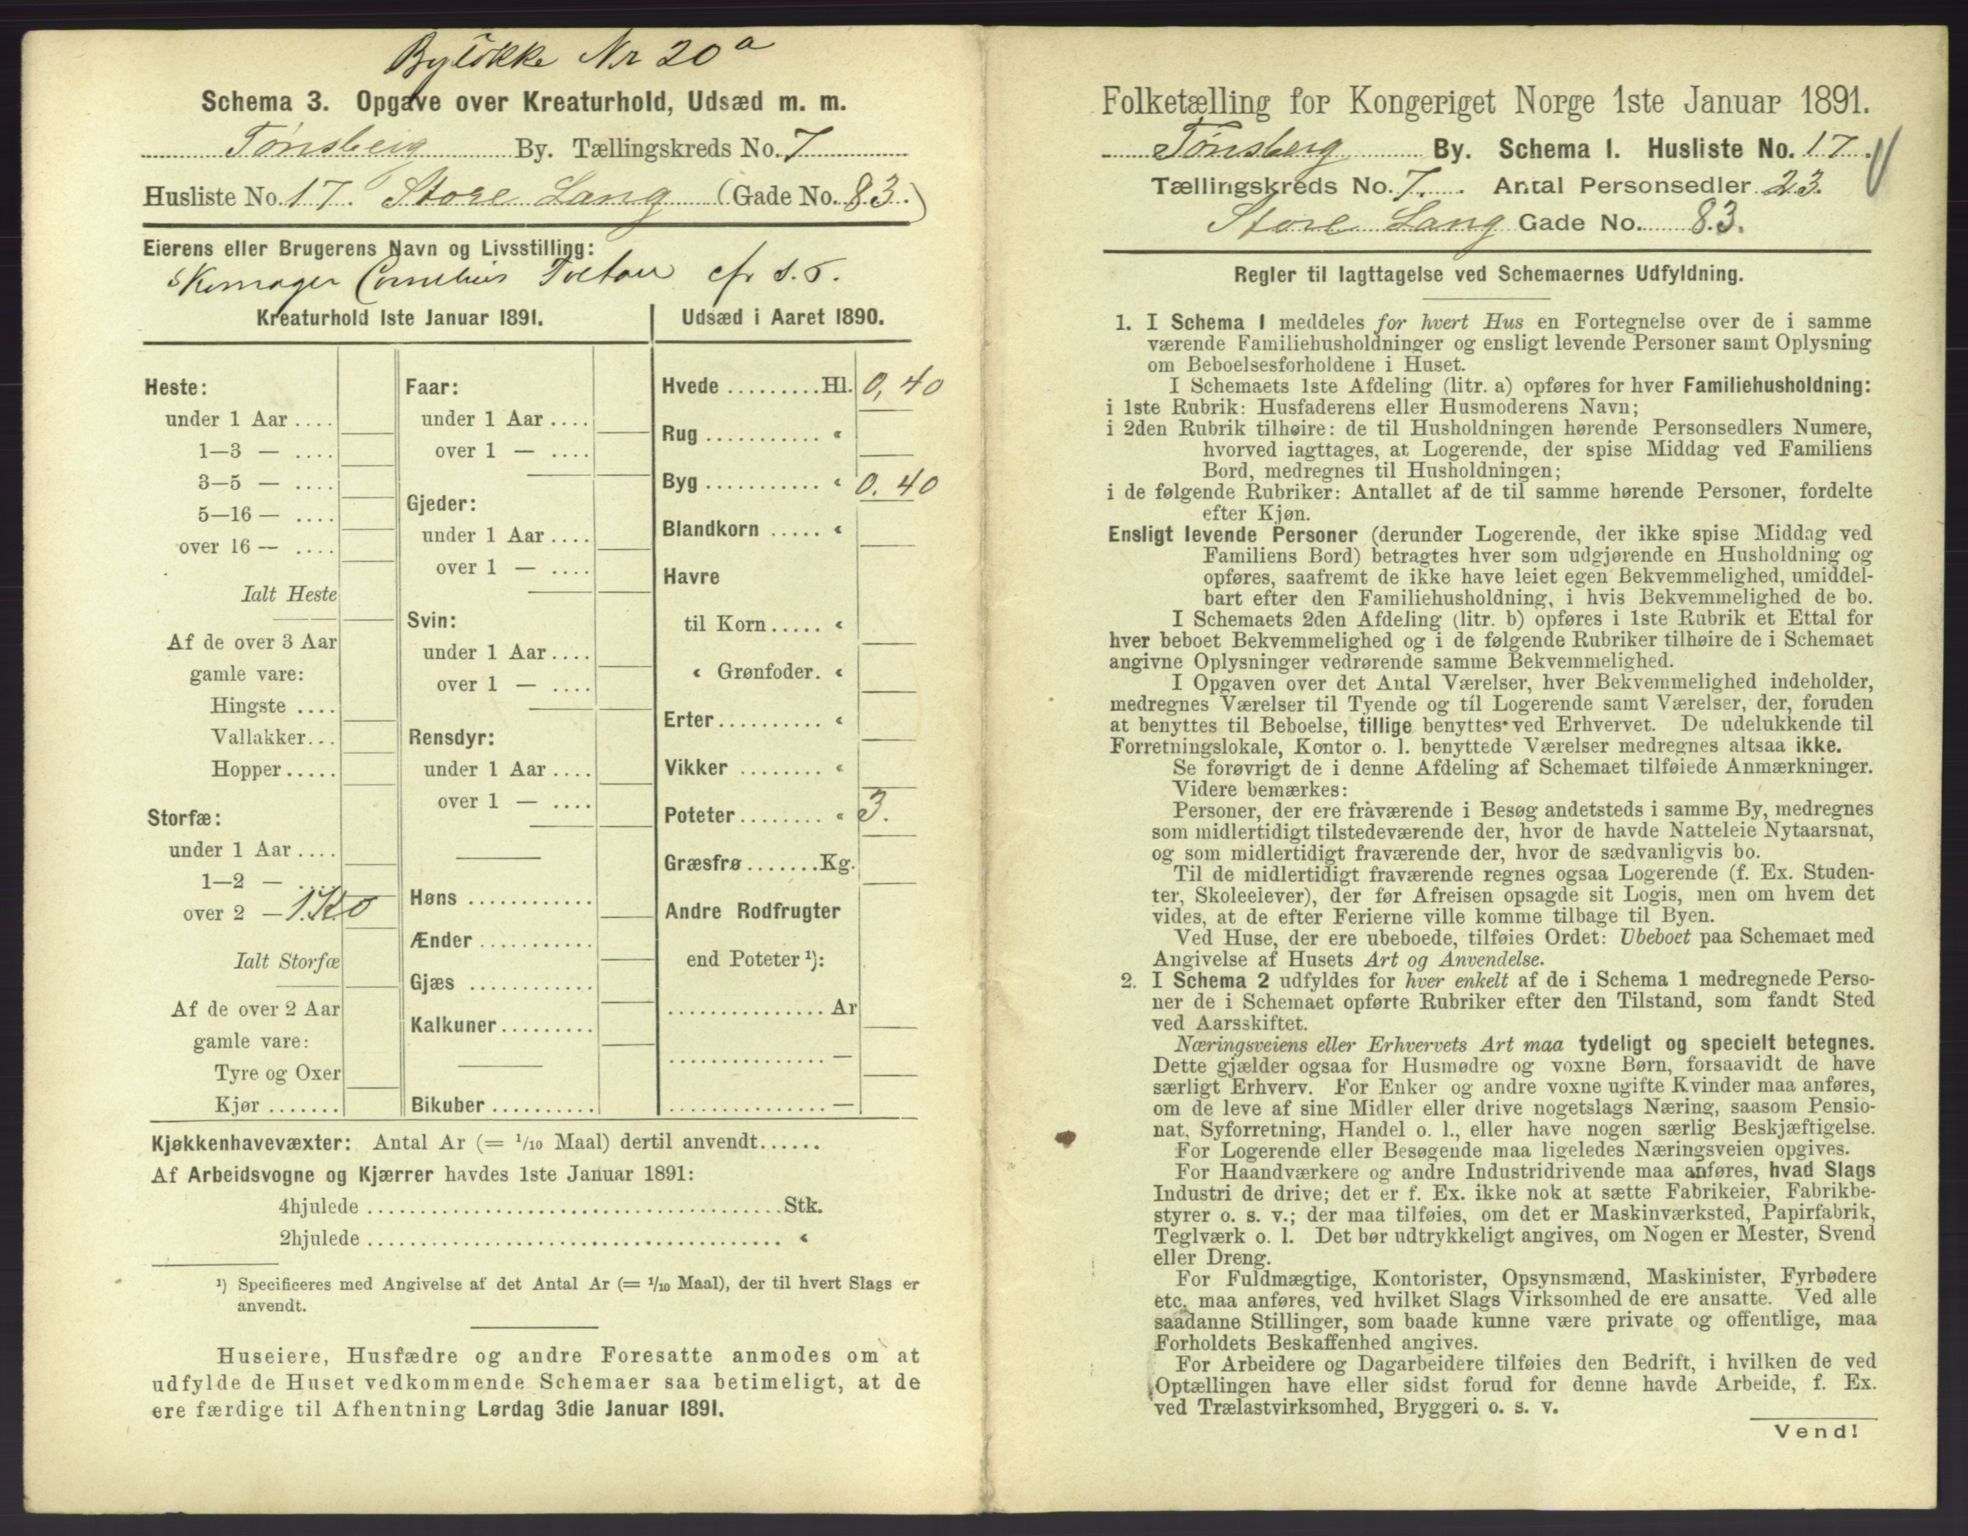 Byløkke Nr 20a
Schema 3. Opgave over Kreaturhold, Udsæd m. m.
Tønsberg By. Tællingskreds No. 7
Husliste No. 17. Store Lang (Gade No. 83.)
Eierens eller Brugerens Navn og Livsstilling:
Skomager Cornelius Tveten cfr s. 5.
Kreaturhold 1ste Januar 1891.
Heste:
under 1 Aar ....
1—3 — ....
3—5 — ....
5—16 — ....
over 16 — ....
Ialt Heste
Af de over 3 Aar
gamle vare:
Hingste ....
Vallakker...
Hopper.....
Storfæ:
under 1 Aar ....
1—2 — ....
over 2 — 1 Ko
Ialt Storfæ
Af de over 2 Aar
gamle vare:
Tyre og Oxer
Kjør .......
Faar:
under 1 Aar ....
over 1 — ....
Gjeder:
under 1 Aar ....
over 1 — ....
Svin:
under 1 Aar ....
over 1 — ....
Rensdyr:
under 1 Aar ....
over 1 — ....
Høns ............
Ænder ...........
Gjæs ............
Kalkuner.........
Bikuber ..........
Udsæd i Aaret 1890.
Hvede .........Hl. 0,40
Rug ........... "
Byg ........... " 0.40
Blandkorn ..... "
Havre
til Korn..... "
" Grønfoder. "
Erter.......... "
Vikker ........ "
Poteter........ " 3.
Græsfrø.......Kg.
Andre Rodfrugter
end Poteter ¹):
............... Ar
............... —
............... —
Kjøkkenhavevæxter: Antal Ar (= 1/10 Maal) dertil anvendt......
Af Arbeidsvogne og Kjærrer havdes 1ste Januar 1891:
4hjulede ........................................Stk.
2hjulede ........................................ "
¹) Specificeres med Angivelse af det Antal Ar (= 1/10 Maal), der til hvert Slags er
anvendt.
Huseiere, Husfædre og andre Foresatte anmodes om at
udfylde de Huset vedkommende Schemaer saa betimeligt, at de
ere færdige til Afhentning Lørdag 3die Januar 1891.
Folketælling for Kongeriget Norge 1ste Januar 1891.
Tønsberg By. Schema 1. Husliste No. 17.
Tællingskreds No. 7. Antal Personsedler 23.
Store Lang Gade No. 83.
Regler til Iagttagelse ved Schemaernes Udfyldning.
1. I Schema 1 meddeles for hvert Hus en Fortegnelse over de i samme
værende Familiehusholdninger og ensligt levende Personer samt Oplysning
om Beboelsesforholdene i Huset.
I Schemaets 1ste Afdeling (litr. a) opføres for hver Familiehusholdning:
i 1ste Rubrik: Husfaderens eller Husmoderens Navn;
i 2den Rubrik tilhøire: de til Husholdningen hørende Personsedlers Numere,
hvorved iagttages, at Logerende, der spise Middag ved Familiens
Bord, medregnes til Husholdningen;
i de følgende Rubriker: Antallet af de til samme hørende Personer, fordelte
efter Kjøn.
Ensligt levende Personer (derunder Logerende, der ikke spise Middag ved
Familiens Bord) betragtes hver som udgjørende en Husholdning og
opføres, saafremt de ikke have leiet egen Bekvemmelighed, umiddel-
bart efter den Familiehusholdning, i hvis Bekvemmelighed de bo.
I Schemaets 2den Afdeling (litr. b) opføres i 1ste Rubrik et Ettal for
hver beboet Bekvemmelighed og i de følgende Rubriker tilhøire de i Schemaet
angivne Oplysninger vedrørende samme Bekvemmelighed.
I Opgaven over det Antal Værelser, hver Bekvemmelighed indeholder,
medregnes Værelser til Tyende og til Logerende samt Værelser, der, foruden
at benyttes til Beboelse, tillige benyttes ved Erhvervet. De udelukkende til
Forretningslokale, Kontor o. l. benyttede Værelser medregnes altsaa ikke.
Se forøvrigt de i denne Afdeling af Schemaet tilføiede Anmærkninger.
Videre bemærkes:
Personer, der ere fraværende i Besøg andetsteds i samme By, medregnes
som midlertidigt tilstedeværende der, hvor de havde Natteleie Nytaarsnat,
og som midlertidigt fraværende der, hvor de sædvanligvis bo.
Til de midlertidigt fraværende regnes ogsaa Logerende (f. Ex. Studen-
ter, Skoleelever), der før Afreisen opsagde sit Logis, men om hvem det
vides, at de efter Ferierne ville komme tilbage til Byen.
Ved Huse, der ere ubeboede, tilføies Ordet: Ubeboet paa Schemaet med
Angivelse af Husets Art og Anvendelse.
2. I Schema 2 udfyldes for hver enkelt af de i Schema 1 medregnede Perso-
ner de i Schemaet opførte Rubriker efter den Tilstand, som fandt Sted
ved Aarsskiftet.
Næringsveiens eller Erhvervets Art maa tydeligt og specielt betegnes.
Dette gjælder ogsaa for Husmødre og voxne Børn, forsaavidt de have
særligt Erhverv. For Enker og andre voxne ugifte Kvinder maa anføres,
om de leve af sine Midler eller drive nogetslags Næring, saasom Pensio-
nat, Syforretning, Handel o. l., eller have nogen særlig Beskjæftigelse.
For Logerende eller Besøgende maa ligeledes Næringsveien opgives.
For Haandværkere og andre Industridrivende maa anføres, hvad Slags
Industri de drive; det er f. Ex. ikke nok at sætte Fabrikeier, Fabrikbe-
styrer o. s. v.; der maa tilføies, om det er Maskinværksted, Papirfabrik,
Teglværk o. l. Det bør udtrykkeligt angives, om Nogen er Mester, Svend
eller Dreng.
For Fuldmægtige, Kontorister, Opsynsmænd, Maskinister, Fyrbødere
etc. maa anføres, ved hvilket Slags Virksomhed de ere ansatte. Ved alle
saadanne Stillinger, som baade kunne være private og offentlige, maa
Forholdets Beskaffenhed angives.
For Arbeidere og Dagarbeidere tilføies den Bedrift, i hvilken de ved
Optællingen have eller sidst forud for denne havde Arbeide, f. Ex.
ved Trælastvirksomhed, Bryggeri o. s. v.
Vend!